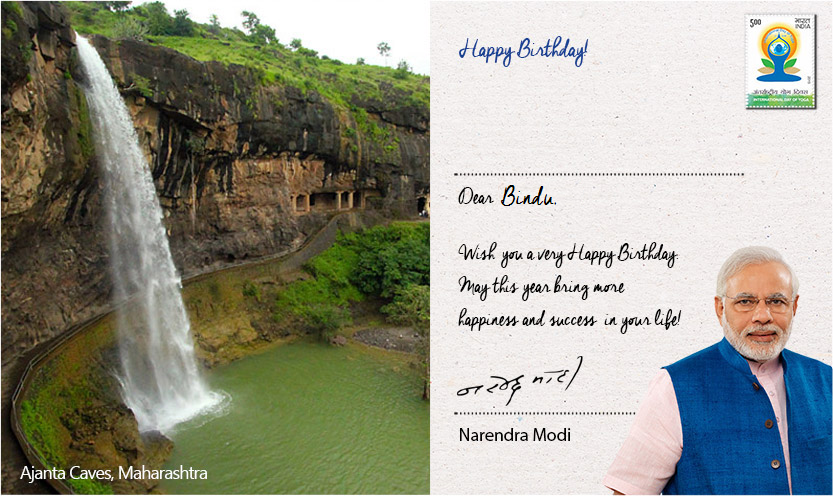 Happy Birthday!
5.00 भारत
INDIA
अंतर्राष्ट्रीय योग दिवस
INTERNATIONAL DAY OF YOGA
Dear Bindu,
Wish you a very Happy Birthday.
May this year bring more
happiness and success in your life!
नरेन्द्र मोदी
Narendra Modi
Ajanta Caves, Maharashtra